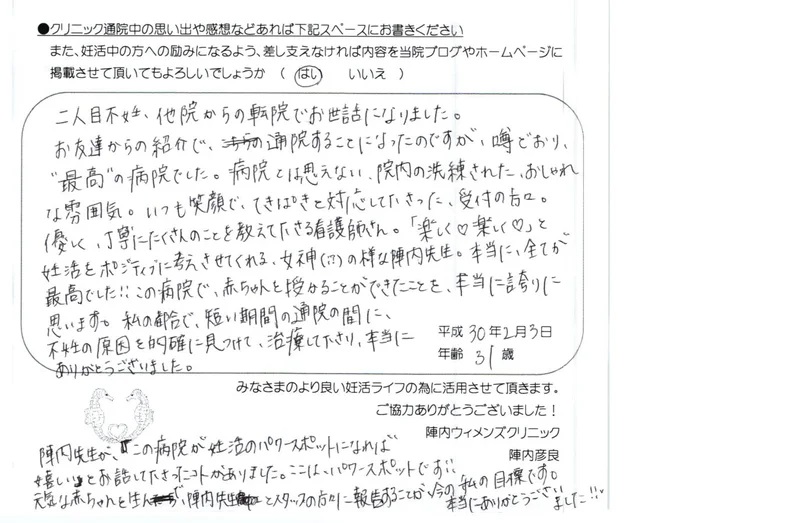 ●クリニック通院中の思い出や感想などあれば下記スペースにお書きください
また、妊活中の方への励みになるよう、差し支えなければ内容を当院ブログやホームページに
掲載させて頂いてもよろしいでしょうか ( はい いいえ )
二人目不妊、他院からの転院でお世話になりました。
お友達からの紹介で、通院することになったのですが、噂どおり、
"最高"の病院でした。病院とは思えない、院内の洗練された、おしゃれ
な雰囲気。いつも笑顔で、てきぱきと対応して下さった、受付の方々。
優しく、丁寧にたくさんのことを教えて下さる看護師さん。「楽しく♡楽しく♡」と
妊活をポジティブに考えさせてくれる、女神(!?)の様な陣内先生。本当に、全てが
最高でした!!この病院で、赤ちゃんを授かることができたことを、本当に誇りに
思います。私の都合で、短い期間の通院の間に、
不妊の原因を的確に見つけて、治療して下さり、本当に
ありがとうございました。
平成30年2月3日
年齢 31歳
みなさまのより良い妊活ライフの為に活用させて頂きます。
ご協力ありがとうございました！
陣内ウィメンズクリニック
陣内彦良
陣内先生が、この病院が妊活のパワースポットになれば
嬉しいとお話して下さったコトがありました。ここは、パワースポットです!!
元気な赤ちゃんを生んで、陣内先生とスタッフの方々に報告することが今の私の目標です。
本当にありがとうございました!!